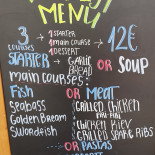 MENU
3 courses 1 starter 1 main course 1 dessert 12€
STARTER → GARLIC BREAD OR SOUP
main courses:
Fish OR MEAT
Seabass GRILLED CHICKEN
Golden Bream CHICKEN KIEV
Swordfish GRILLED SPARE RIBS
OR PASTAS